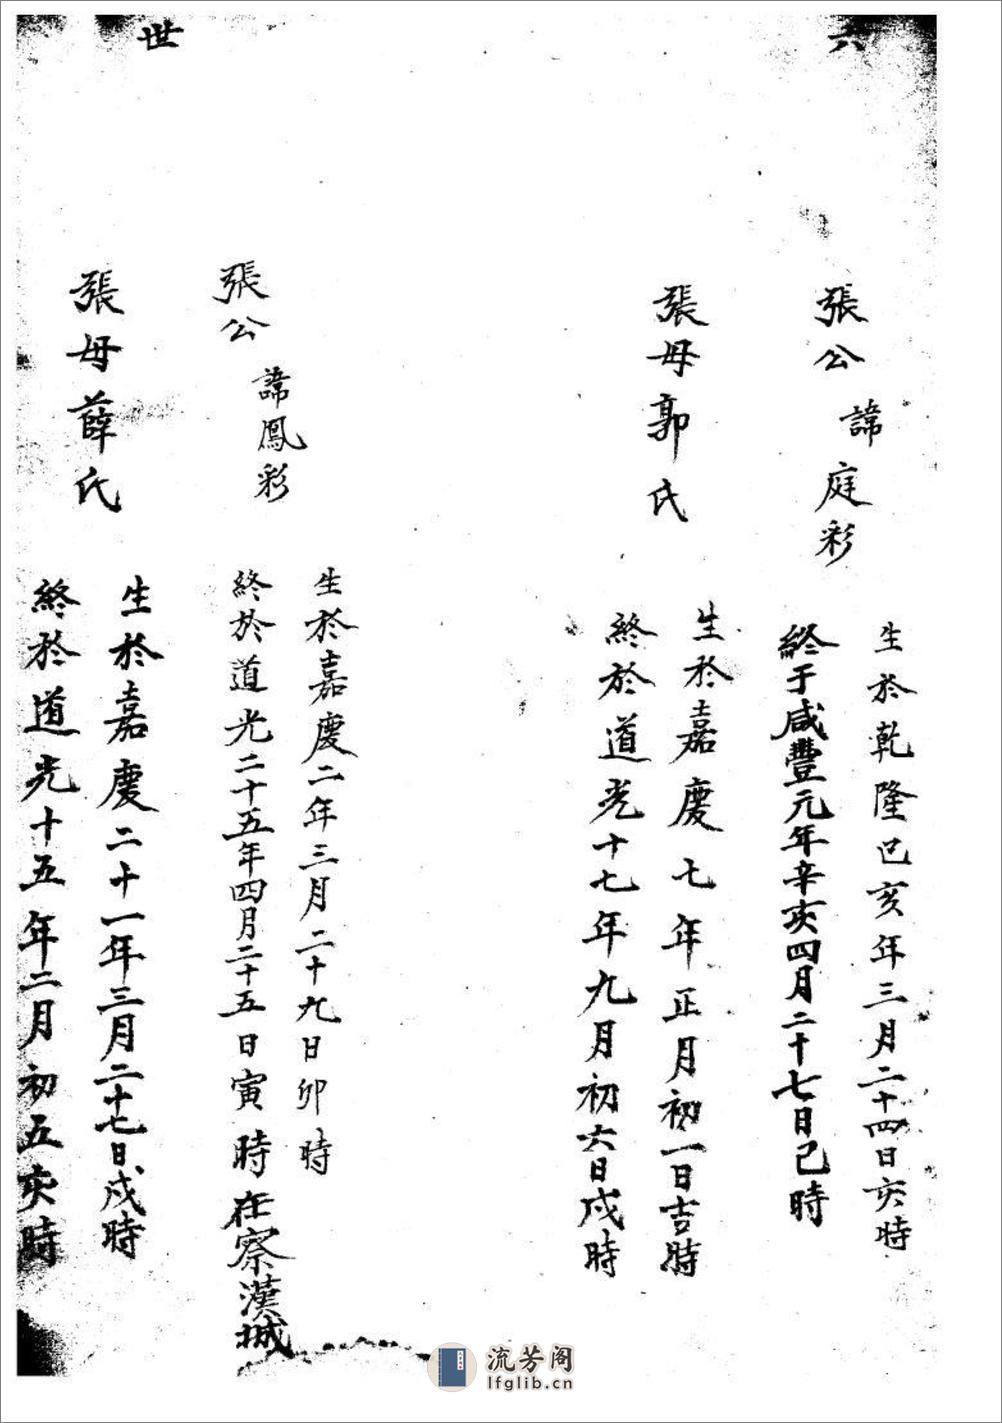 六
張公諱庭彩
生於乾隆己亥年三月二十四日亥時
終于咸豐元年辛亥四月二十七日己時
張母郭氏
生於嘉慶七年正月初一日吉時
終於道光十七年九月初六日戌時
張公諱鳳彩
生於嘉慶二年三月二十九日卯時
終於道光二十五年四月二十五日寅時在察漢城
世
張母薛氏
生於嘉慶二十一年三月二十七日戌時
終於道光十五年二月初五亥時
流芳阁
lfglib.cn